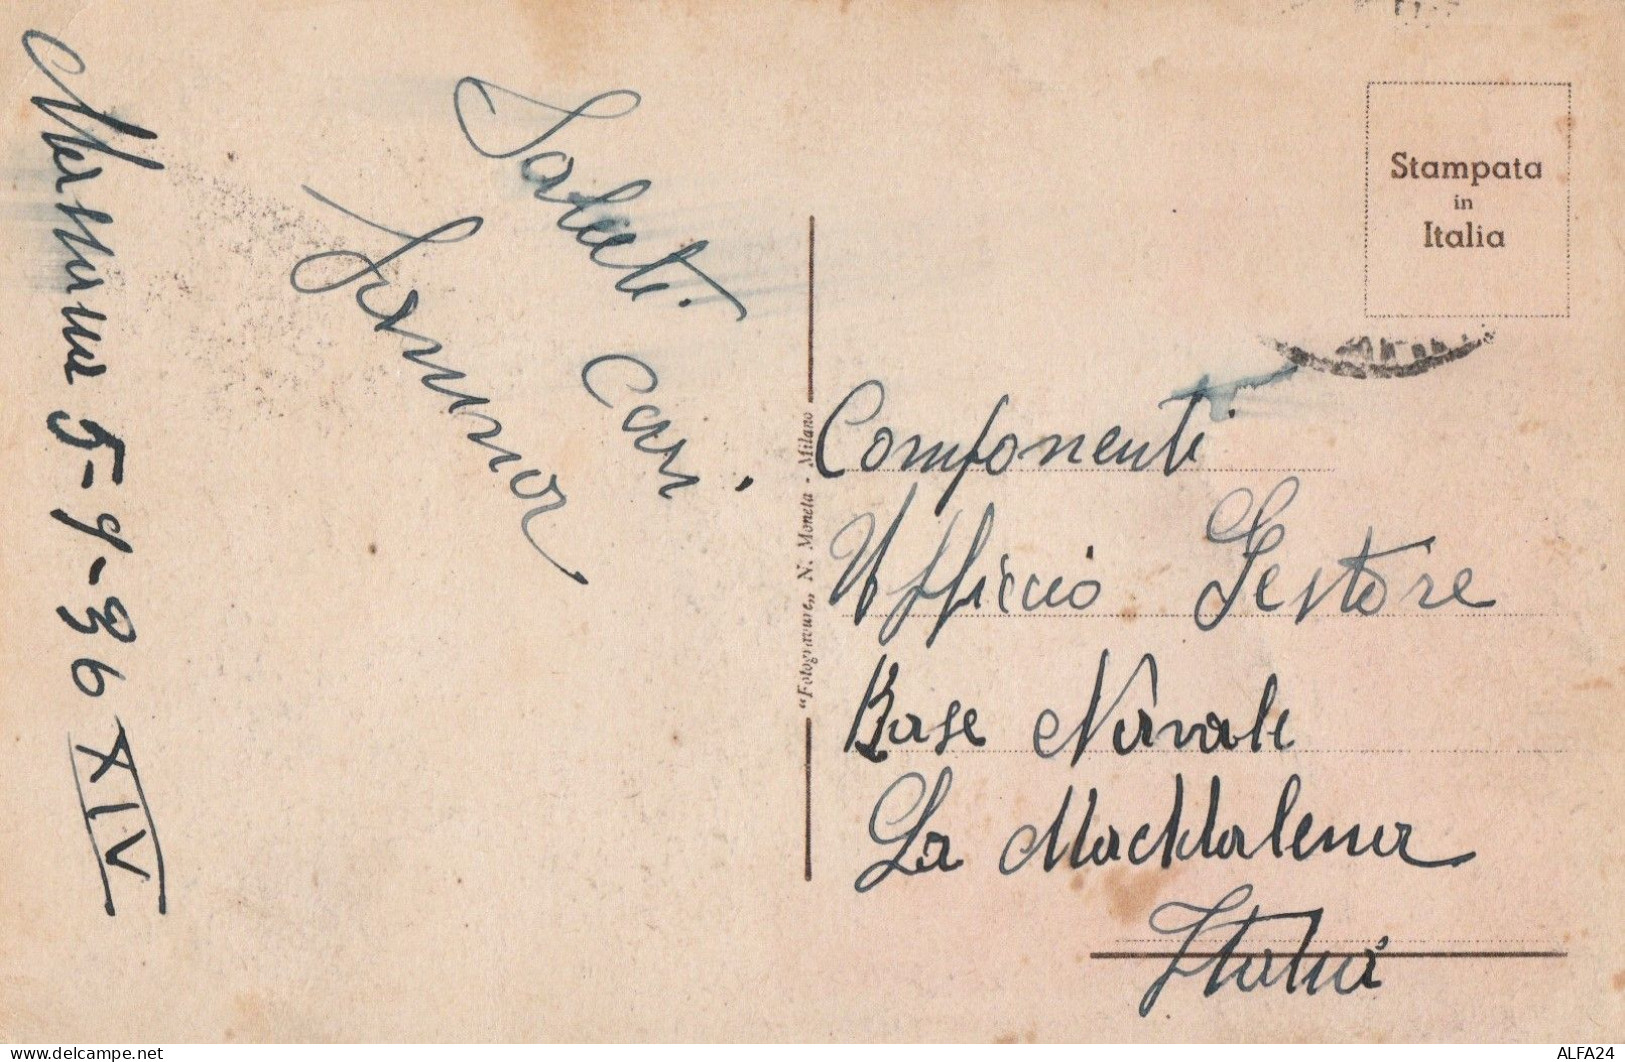 Massaua 5-9-36 XIV
Saluti cari
Stampata
in
Italia
"Fotogravure„ N. Moneta - Milano
Componenti
Ufficio Gestore
Base Navale
La Maddalena
Italia
ALFA24